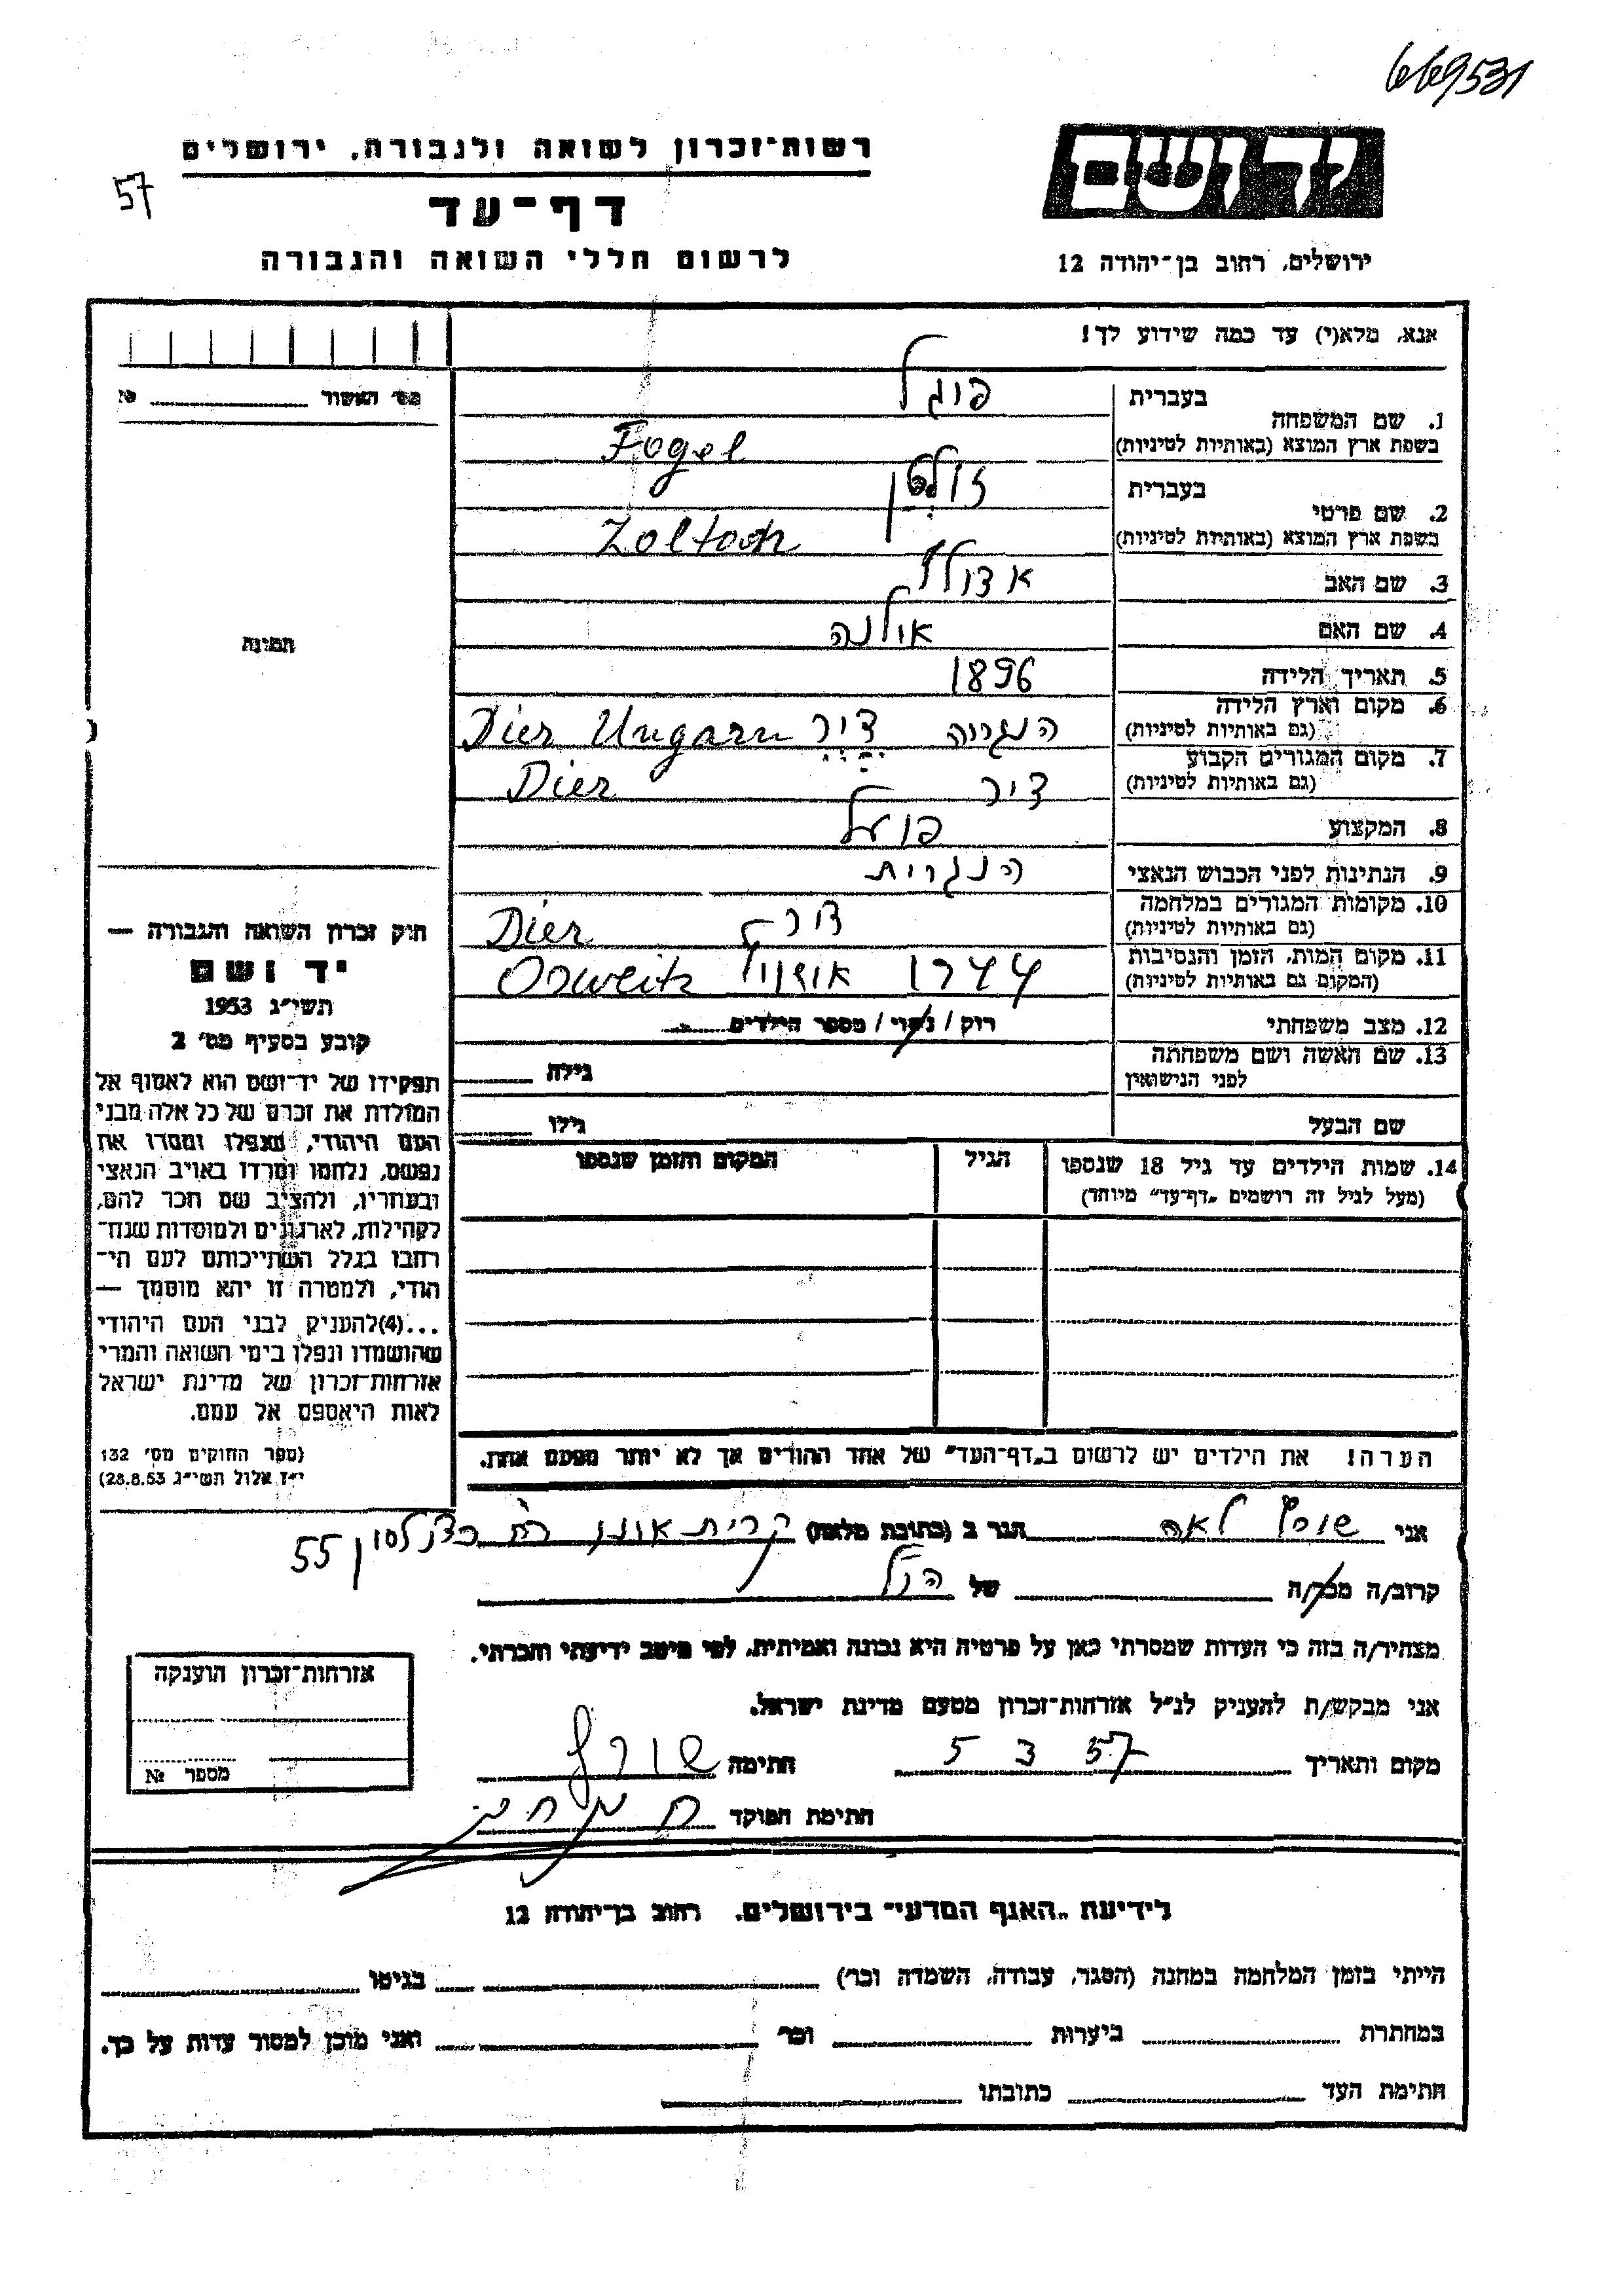 669531
רשות־זכרון לשואה ולגבורה, ירושלים
יד ושם
57
דף־עד
לרשום חללי השואה והגבורה
ירושלים, רחוב בן־יהודה 12
אנא, מלא(י) עד כמה שידוע לך!
מס' האשור №
תמונה
1. שם המשפחה
בעברית פוגל
בשפת ארץ המוצא (באותיות לטיניות) Fogel
2. שם פרטי
בעברית זולטן
בשפת ארץ המוצא (באותיות לטיניות)
3. שם האב אדולף
4. שם האם אולנה
5. תאריך הלידה 1896
6. מקום וארץ הלידה
(גם באותיות לטיניות) הנגריה דיר Dier Ungarn
7. מקום המגורים הקבוע
(גם באותיות לטיניות) דיר Dier
8. המקצוע פועל
9. הנתינות לפני הכבוש הנאצי הנגרית
10. מקומות המגורים במלחמה
(גם באותיות לטיניות) דיר Dier
11. מקום המות, הזמן והנסיבות
(המקום גם באותיות לטיניות) 1944 Osweitz
12. מצב משפחתי רוק / נשוי / מספר הילדים
13. שם האשה ושם משפחתה
לפני הנישואין גילה
שם הבעל גילו
14. שמות הילדים עד גיל 18 שנספו הגיל המקום והזמן שנספו
(מעל לגיל זה רושמים „דף־עד" מיוחד)
הערה! את הילדים יש לרשום ב„דף־העד" של אחד ההורים אך לא יותר מפעם אחת.
חוק זכרון השואה והגבורה —
יד ושם
תשי"ג 1953
קובע בסעיף מס' 2
תפקידו של יד־ושם הוא לאסוף אל
המולדת את זכרם של כל אלה מבני
העם היהודי, שנפלו ומסרו את
נפשם, נלחמו ומרדו באויב הנאצי
ובעוזריו, ולהציב שם וזכר להם,
לקהילות, לארגונים ולמוסדות שנח־
רבו בגלל השתייכותם לעם הי־
הודי, ולמטרה זו יהא מוסמך —
...(4)להעניק לבני העם היהודי
שהושמדו ונפלו בימי השואה והמרי
אזרחות־זכרון של מדינת ישראל
לאות היאספם אל עמם.
(ספר החוקים מס' 132
י"ז אלול תשי"ג 28.8.53)
אני לאה הגר ב (כתובת מלאה) קרית אונו 55
קרוב/ה מכר/ה של הנ"ל
מצהיר/ה בזה כי העדות שמסרתי כאן על פרטיה היא נכונה ואמיתית, לפי מיטב ידיעתי והכרתי.
אני מבקש/ת להעניק לנ"ל אזרחות־זכרון מטעם מדינת ישראל.
מקום ותאריך 5 3 57 חתימה
חתימת הפוקד
אזרחות־זכרון הוענקה
מספר №
לידיעת „האגף המדעי" בירושלים. רחוב בן־יהודה 12
הייתי בזמן המלחמה במחנה (הסגר, עבודה, השמדה וכו') בגיטו
במחתרת ביערות וכו' ואני מוכן למסור עדות על כך.
חתימת העד כתובתו